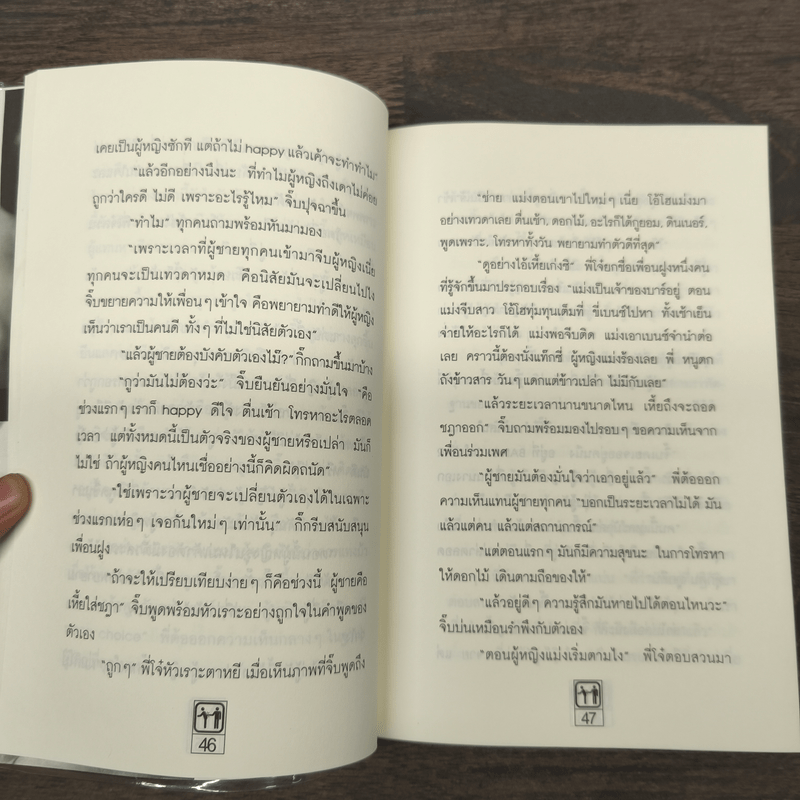 เคยเป็นผู้หญิงซักที แต่ถ้าไม่ happy แล้วเค้าจะทำทำไม"
"แล้วอีกอย่างนึงนะ ที่ทำไมผู้หญิงถึงเดาไม่ค่อย
ถูกว่าใครดี ไม่ดี เพราะอะไรรู้ไหม" จิ๊บปุจฉาขึ้น
"ทำไม" ทุกคนถามพร้อมหันมามอง
"เพราะเวลาที่ผู้ชายทุกคนเข้ามาจีบผู้หญิงเนี่ย
ทุกคนจะเป็นเทวดาหมด คือนิสัยมันจะเปลี่ยนไปไง
จิ๊บขยายความให้เพื่อนๆ เข้าใจ คือพยายามทำดีให้ผู้หญิง
เห็นว่าเราเป็นคนดี ทั้งๆ ที่ไม่ใช่นิสัยตัวเอง"
"แล้วผู้ชายต้องบังคับตัวเองไม๊?" กิ๊กถามขึ้นมาบ้าง
"กูว่ามันไม่ต้องว่ะ" จิ๊บยืนยันอย่างมั่นใจ "คือ
ช่วงแรกๆ เราก็ happy ดีใจ ตื่นเช้า โทรหาอะไรตลอด
เวลา แต่ทั้งหมดนี้เป็นตัวจริงของผู้ชายหรือเปล่า มันก็
ไม่ใช่ ถ้าผู้หญิงคนไหนเชื่ออย่างนี้ก็คิดผิดถนัด"
"ใช่เพราะว่าผู้ชายจะเปลี่ยนตัวเองได้ในเฉพาะ
ช่วงแรกเห่อๆ เจอกันใหม่ๆ เท่านั้น" กิ๊กรีบสนับสนุน
เพื่อนฝูง
"ถ้าจะให้เปรียบเทียบง่ายๆ ก็คือช่วงนี้ ผู้ชายคือ
เหี้ยใส่ชฎา" จิ๊บพูดพร้อมหัวเราะอย่างถูกใจในคำพูดของ
ตัวเอง
"ถูกๆ" พี่โจ๋หัวเราะตาหยี เมื่อเห็นภาพที่จิ๊บพูดถึง
46
"ช่าย แม่งตอนเขาไปใหม่ๆ เนี่ย โอ้โฮแม่งมา
อย่างเทวดาเลย ตื่นเช้า, ดอกไม้, อะไรก็ได้กูยอม, ดินเนอร์,
พูดเพราะ, โทรหาทั้งวัน พยายามทำตัวดีที่สุด"
"ดูอย่างไอ้เหี้ยเก่งซิ" พี่โจ๋ยกชื่อเพื่อนฝูงหนึ่งคน
ที่รู้จักขึ้นมาประกอบเรื่อง "แม่งเป็นเจ้าของบาร์อยู่ ตอน
แม่งจีบสาว โอ้โฮทุ่มทุนเต็มที่ ขี่เบนซ์ไปหา ทั้งเช้าเย็น
จ่ายให้อะไรก็ได้ แม่งพอจีบติด แม่งเอาเบนซ์จำนำต่อ
เลย คราวนี้ต้องนั่งแท๊กซี่ ผู้หญิงแม่งร้องเลย พี่ หนูตก
ถังข้าวสาร วันๆ แดกแต่ข้าวเปล่า ไม่มีกับเลย"
"แล้วระยะเวลานานขนาดไหน เหี้ยถึงจะถอด
ชฎาออก" จิ๊บถามพร้อมมองไปรอบๆ ขอความเห็นจาก
เพื่อนร่วมเพศ
"ผู้ชายมันต้องมั่นใจว่าเอาอยู่แล้ว" พี่ต้อออก
ความเห็นแทนผู้ชายทุกคน "บอกเป็นระยะเวลาไม่ได้ มัน
แล้วแต่คน แล้วแต่สถานการณ์"
"แต่ตอนแรกๆ มันก็มีความสุขนะ ในการโทรหา
ให้ดอกไม้ เดินตามถือของให้"
"แล้วอยู่ดีๆ ความรู้สึกมันหายไปได้ตอนไหนวะ"
จิ๊บบ่นเหมือนรำพึงกับตัวเอง
"ตอนผู้หญิงแม่งเริ่มตามไง" พี่โจ๋ตอบสวนมา
47